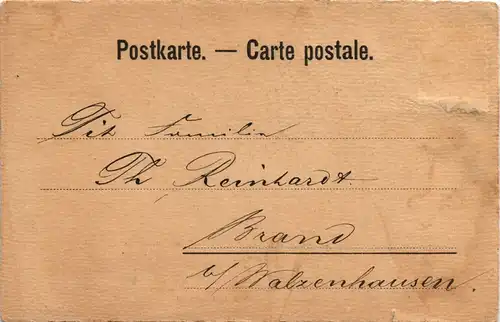 Postkarte. — Carte postale.
Tit Familie
Th Reinhardt.
Brand
b/Walzenhausen.